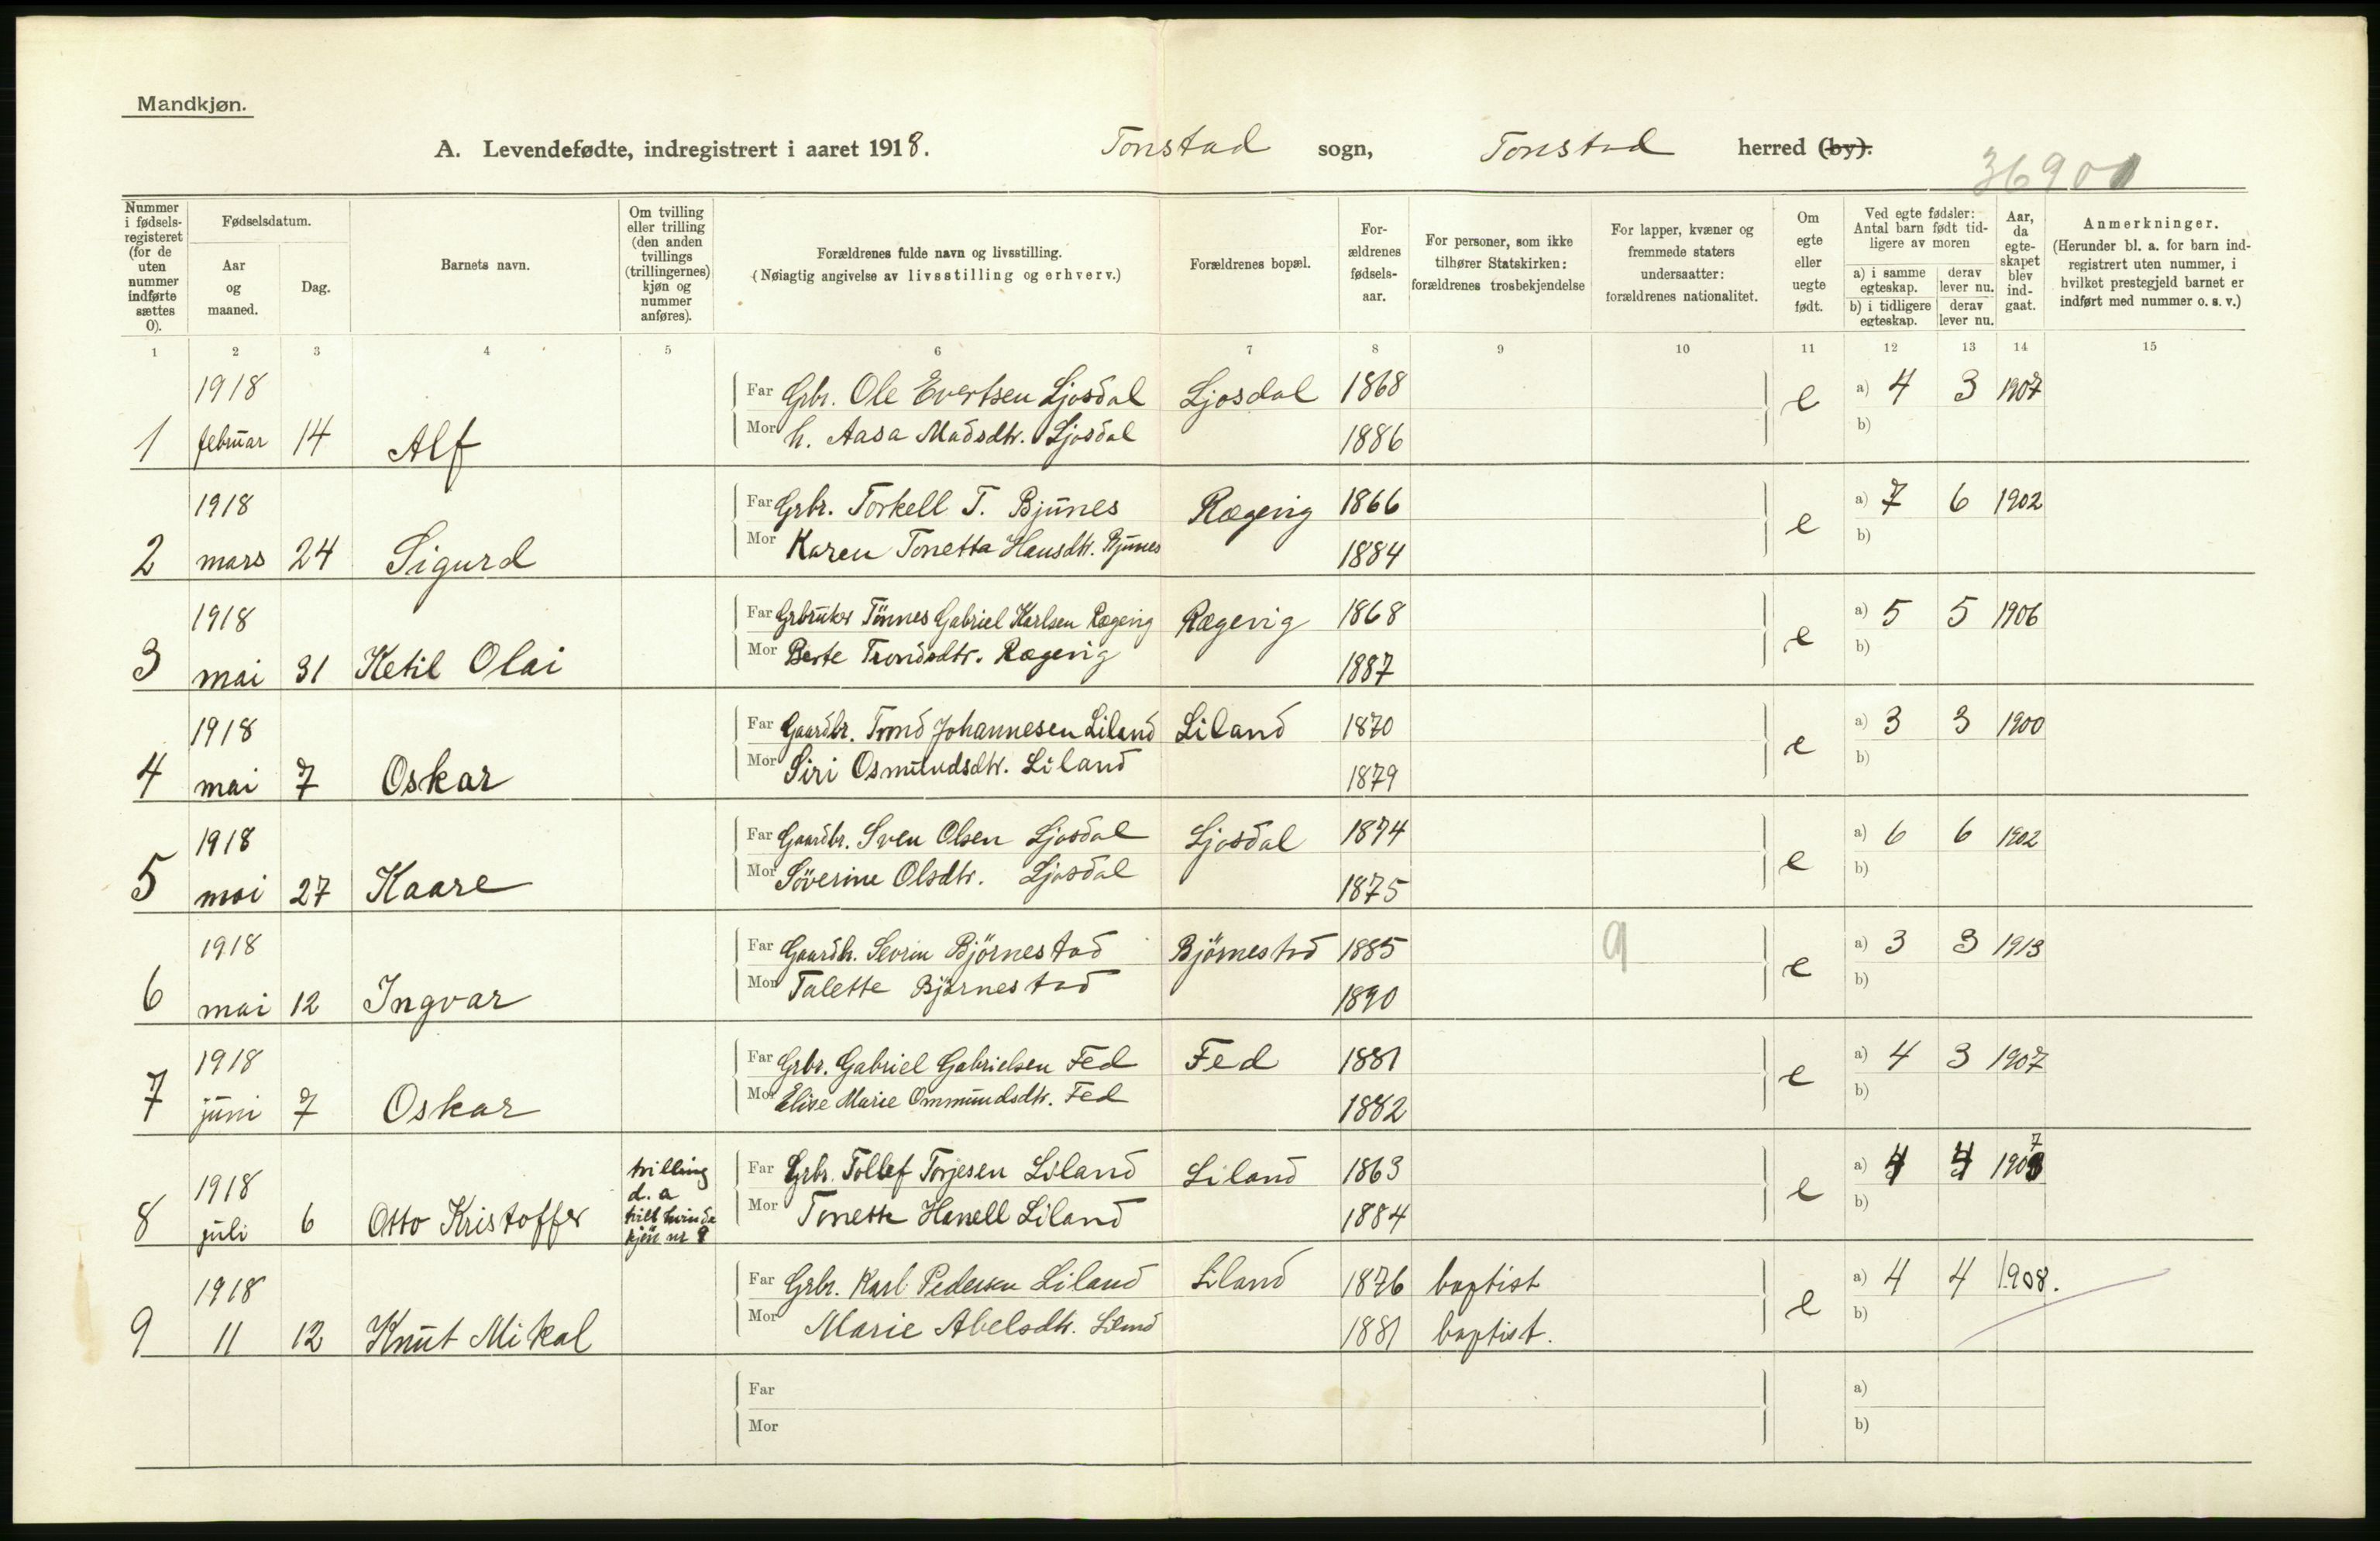 Mandkjøn.
A. Levendefødte, indregistrert i aaret 1918. Tonstad sogn, Tonstad herred (by).
36901
Nummer i fødsels-registeret (for de uten nummer indførte sættes 0).
Fødselsdatum.
Aar og maaned.
Dag.
Barnets navn.
Om tvilling eller trilling (den anden tvillings (trillingernes) kjøn og nummer anføres).
Forældrenes fulde navn og livsstilling.
(Nøiagtig angivelse av livsstilling og erhverv.)
Forældrenes bopæl.
For-ældrenes fødsels-aar.
For personer, som ikke tilhører Statskirken: forældrenes trosbekjendelse
For lapper, kvæner og fremmede staters undersaatter: forældrenes nationalitet.
Om egte eller uegte født.
Ved egte fødsler: Antal barn født tid-ligere av moren
a) i samme egteskap.
derav lever nu.
b) i tidligere egteskap.
derav lever nu.
Aar, da egte-skapet blev ind-gaat.
Anmerkninger.
(Herunder bl. a. for barn ind-registrert uten nummer, i hvilket prestegjeld barnet er indført med nummer o. s. v.)
1 2 3 4 5 6 7 8 9 10 11 12 13 14 15
1918 Far Grbr. Ole Evertsen Ljosdal Ljosdal 1868 e a) 4 3 1907
1 februar 14 Alf Mor h. Aasa Madsdtr. Ljosdal 1886 b)
1918 Far Grbr. Torkell T. Bjunes Rægevig 1866 e a) 7 6 1902
2 mars 24 Sigurd Mor Karen Tonetta Hansdtr. Bjunes 1884 b)
1918 Far Grbruker Tönnes Gabriel Karlsen Rægevig Rægevig 1868 e a) 5 5 1906
3 mai 31 Ketil Olai Mor Berte Trondsdtr. Rægevig 1887 b)
1918 Far Gaardbr. Trond Johannesen Liland Liland 1870 e a) 3 3 1900
4 mai 7 Oskar Mor Siri Osmundsdtr. Liland 1879 b)
1918 Far Gaardbr. Sven Olsen Ljosdal Ljosdal 1874 e a) 6 6 1902
5 mai 27 Kaare Mor Söverine Olsdtr. Ljosdal 1875 b)
1918 Far Gaardbr. Sevrin Björnestad Björnestad 1885 9 e a) 3 3 1913
6 mai 12 Ingvar Mor Talette Björnestad 1890 b)
1918 Far Grbr. Gabriel Gabrielsen Fed Fed 1881 e a) 4 3 1907
7 juni 7 Oskar Mor Elise Marie Ommundsdtr. Fed 1882 b)
1918 trilling d. a Far Grbr. Tollef Torjesen Liland Liland 1863 e a) 4 4 1907
8 juli 6 Otto Kristoffer kjön nr 9 Mor Tonette Hanell Liland 1884 b)
1918 Far Grbr. Karl Pedersen Liland Liland 1876 baptist e a) 4 4 1908.
9 11 12 Knut Mikal Mor Marie Abelsdtr. Liland 1881 baptist. b)
Far a)
Mor b)